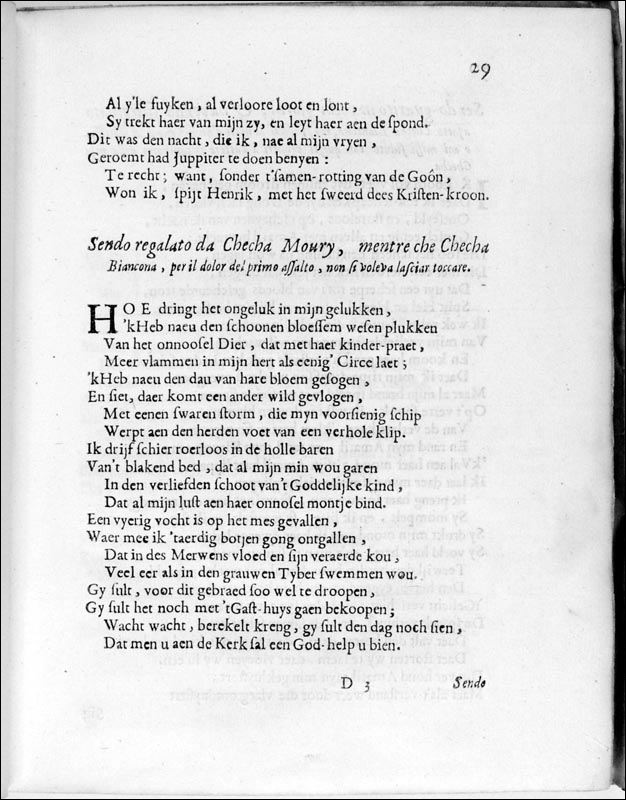 29
Al y'le fuyken, al verloore loot en lont,
Sy trekt haer van mijn zy, en leyt haer aen de ſpond.
Dit was den nacht, die ik, nae al mijn vryen,
Geroemt had Juppiter te doen benyen:
Te recht; want, ſonder t'ſamen-rotting van de Goôn,
Won ik, ſpijt Henrik, met het ſweerd dees Kriſten-kroon.
Sendo regalato da Checha Moury, mentre che Checha
Biancona, per il dolor del primo aſſalto, non ſi voleva laſciar toccare.
HOE dringt het ongeluk in mijn gelukken,
'kHeb naeu den ſchoonen bloeſſem weſen plukken
Van het onnooſel Dier, dat met haer kinder-praet,
Meer vlammen in mijn hert als eenig' Circe laet;
'kHeb naeu den dau van hare bloem geſogen,
En ſiet, daer komt een ander wild gevlogen,
Met eenen ſwaren ſtorm, die myn voorſienig ſchip
Werpt aen den herden voet van een verhole klip.
Ik drijf ſchier roerloos in de holle baren
Van't blakend bed, dat al mijn min wou garen
In den verliefden ſchoot van't Goddelijke kind,
Dat al mijn luſt aen haer onnoſel montje bind.
Een vyerig vocht is op het mes gevallen,
Waer mee ik 'taerdig botjen gong ontgallen,
Dat in des Merwens vloed en ſijn veraerde kou,
Veel eer als in den grauwen Tyber ſwemmen wou.
Gy ſult, voor dit gebraed ſoo wel te droopen,
Gy ſult het noch met 'tGaſt-huys gaen bekoopen;
Wacht wacht, berekelt kreng, gy ſult den dag noch ſien,
Dat men u aen de Kerk ſal een God-help u bien.
D 3 Sendo